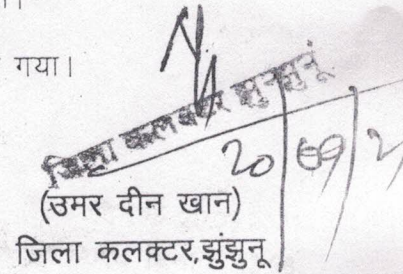 गया।
जिला कलक्टर झुन्झुनूं
20
(उमर दीन खान)
जिला कलक्टर,झुंझुनू